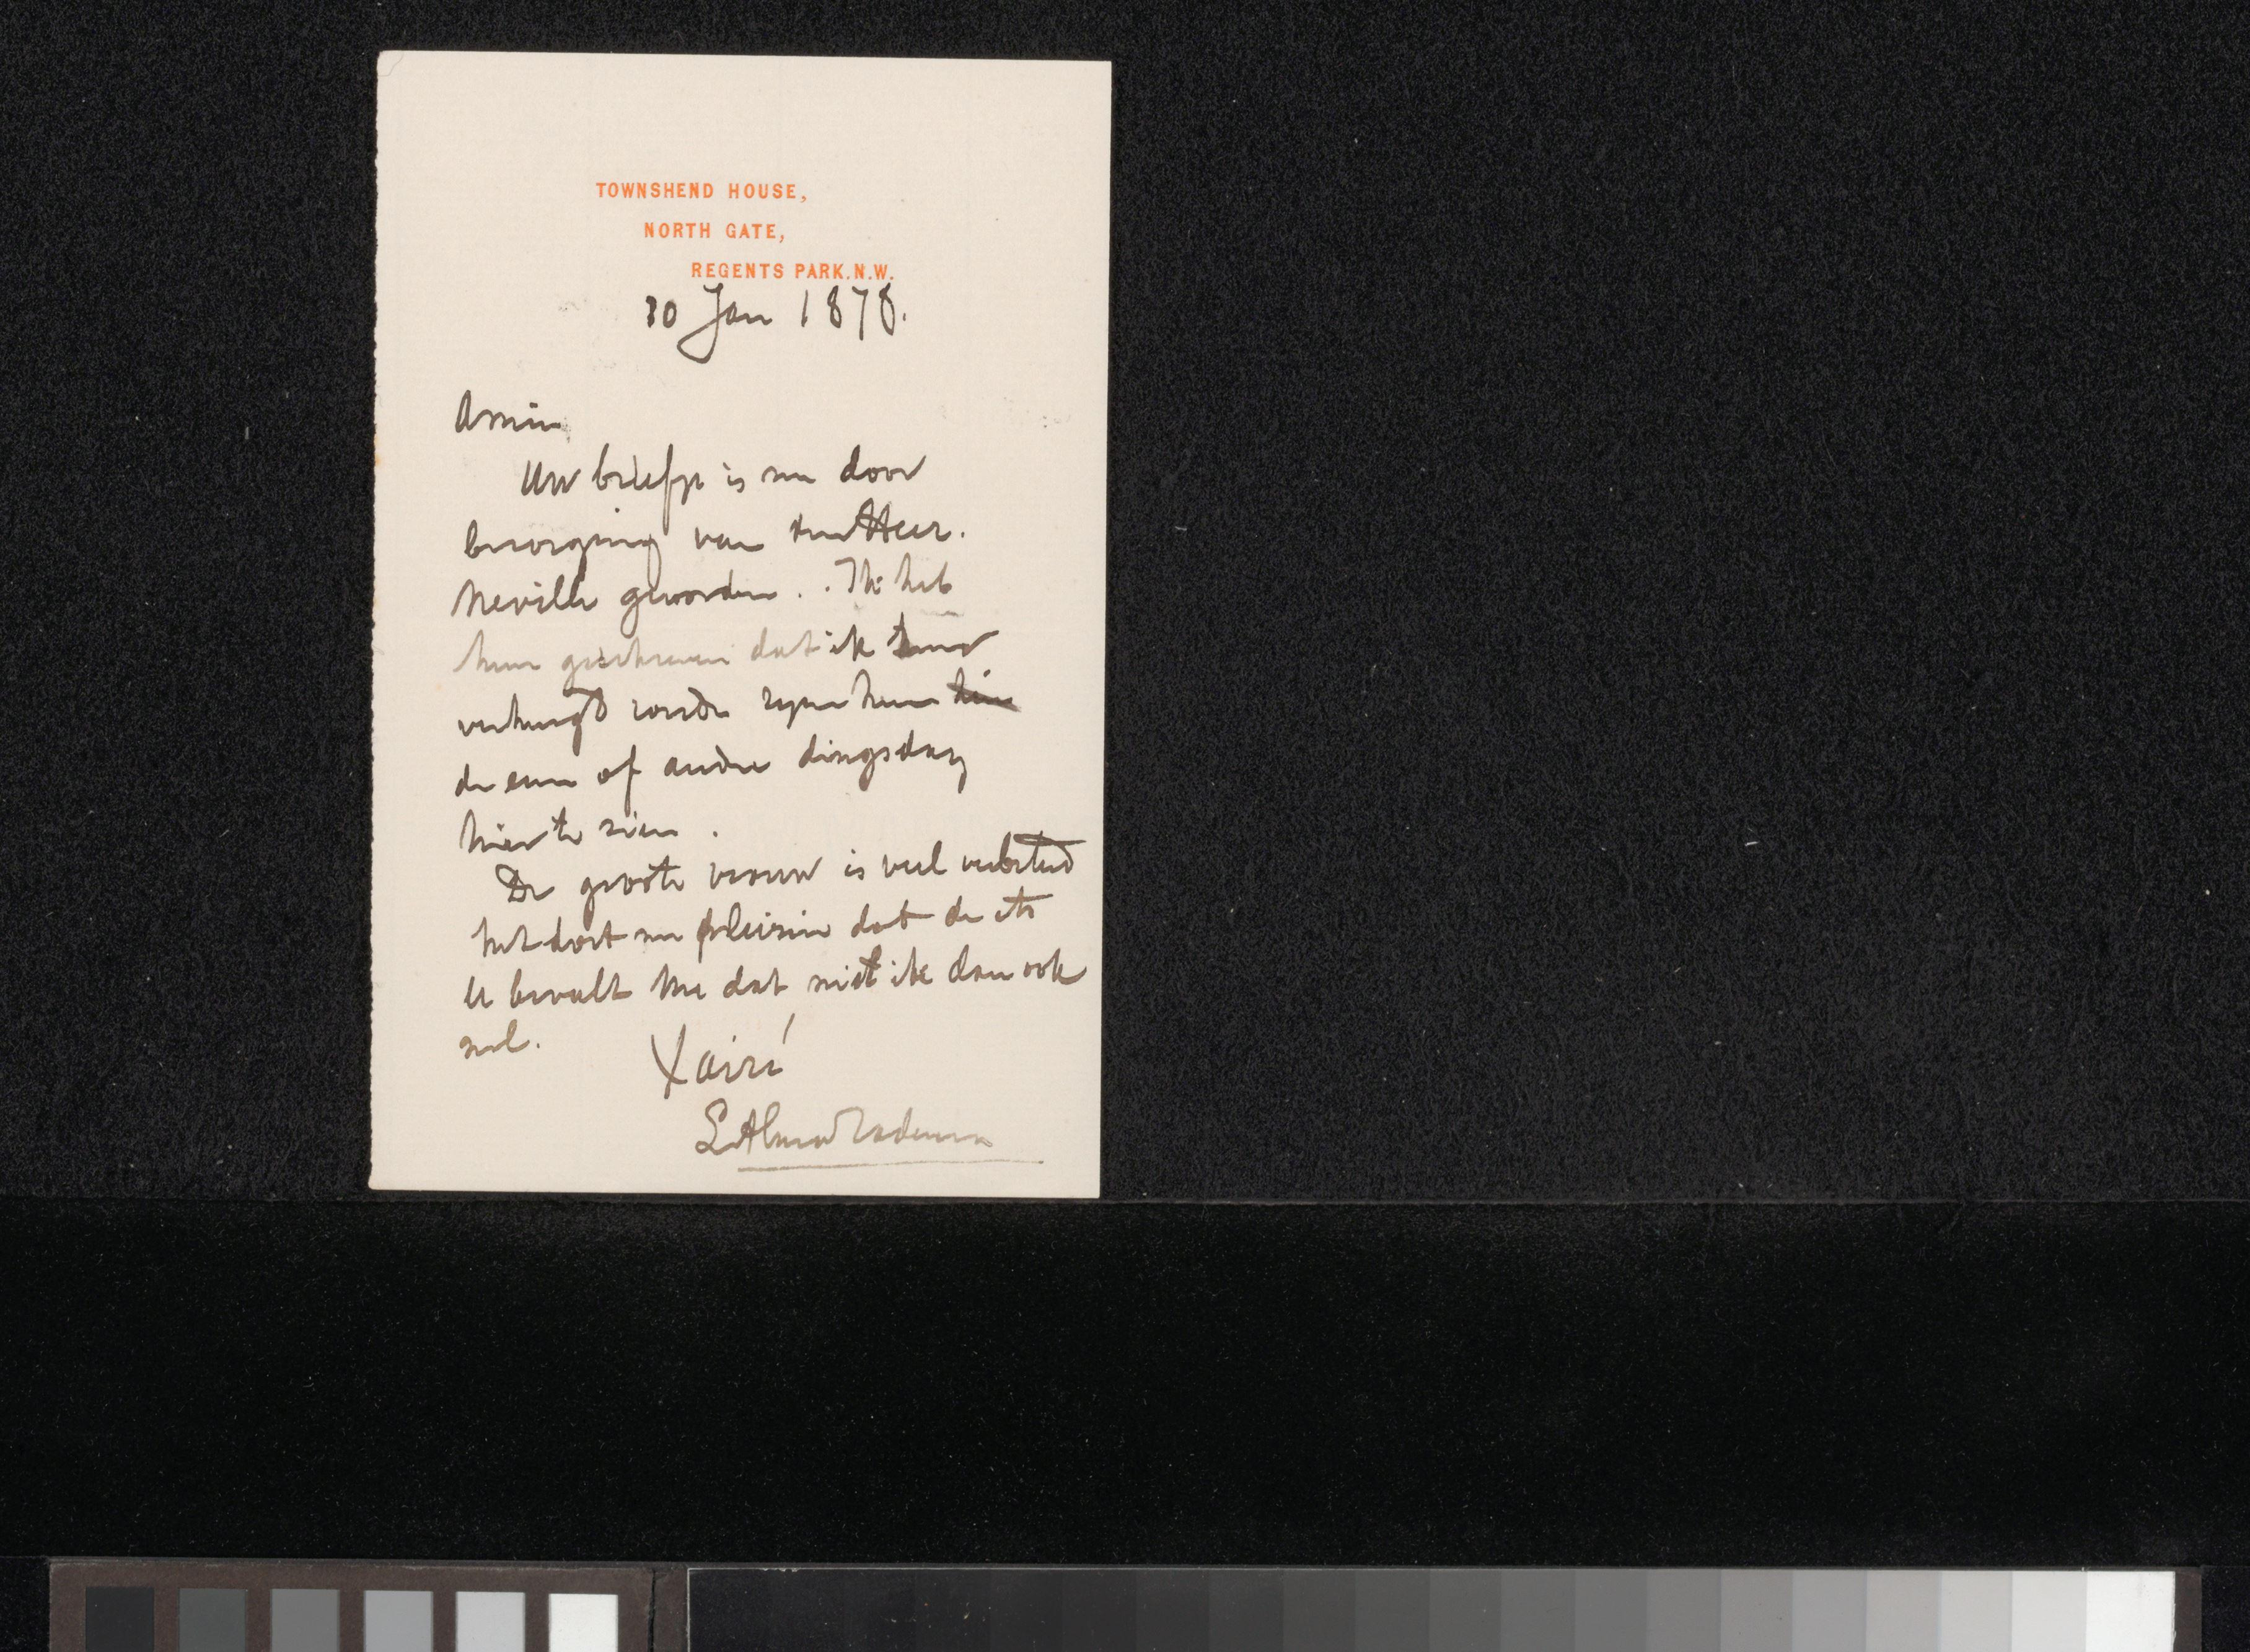 TOWNSHEND HOUSE,
NORTH GATE,
REGENTS PARK.N.W.
30 Jan 1878.
Amice
Uw briefje is me door
bezorging van den Heer.
Neville geworden.. Ik heb
hem geschreven dat ik
verheugd zoude zyn hem
de eene of andere dingsdag
hier te zien.
De groote vrouw is veel verbeterd
het doet me pleizier dat de ets
U bevalt me dat niet ik dan ook
wel.
Χαῖρέ
L Alma Tadema